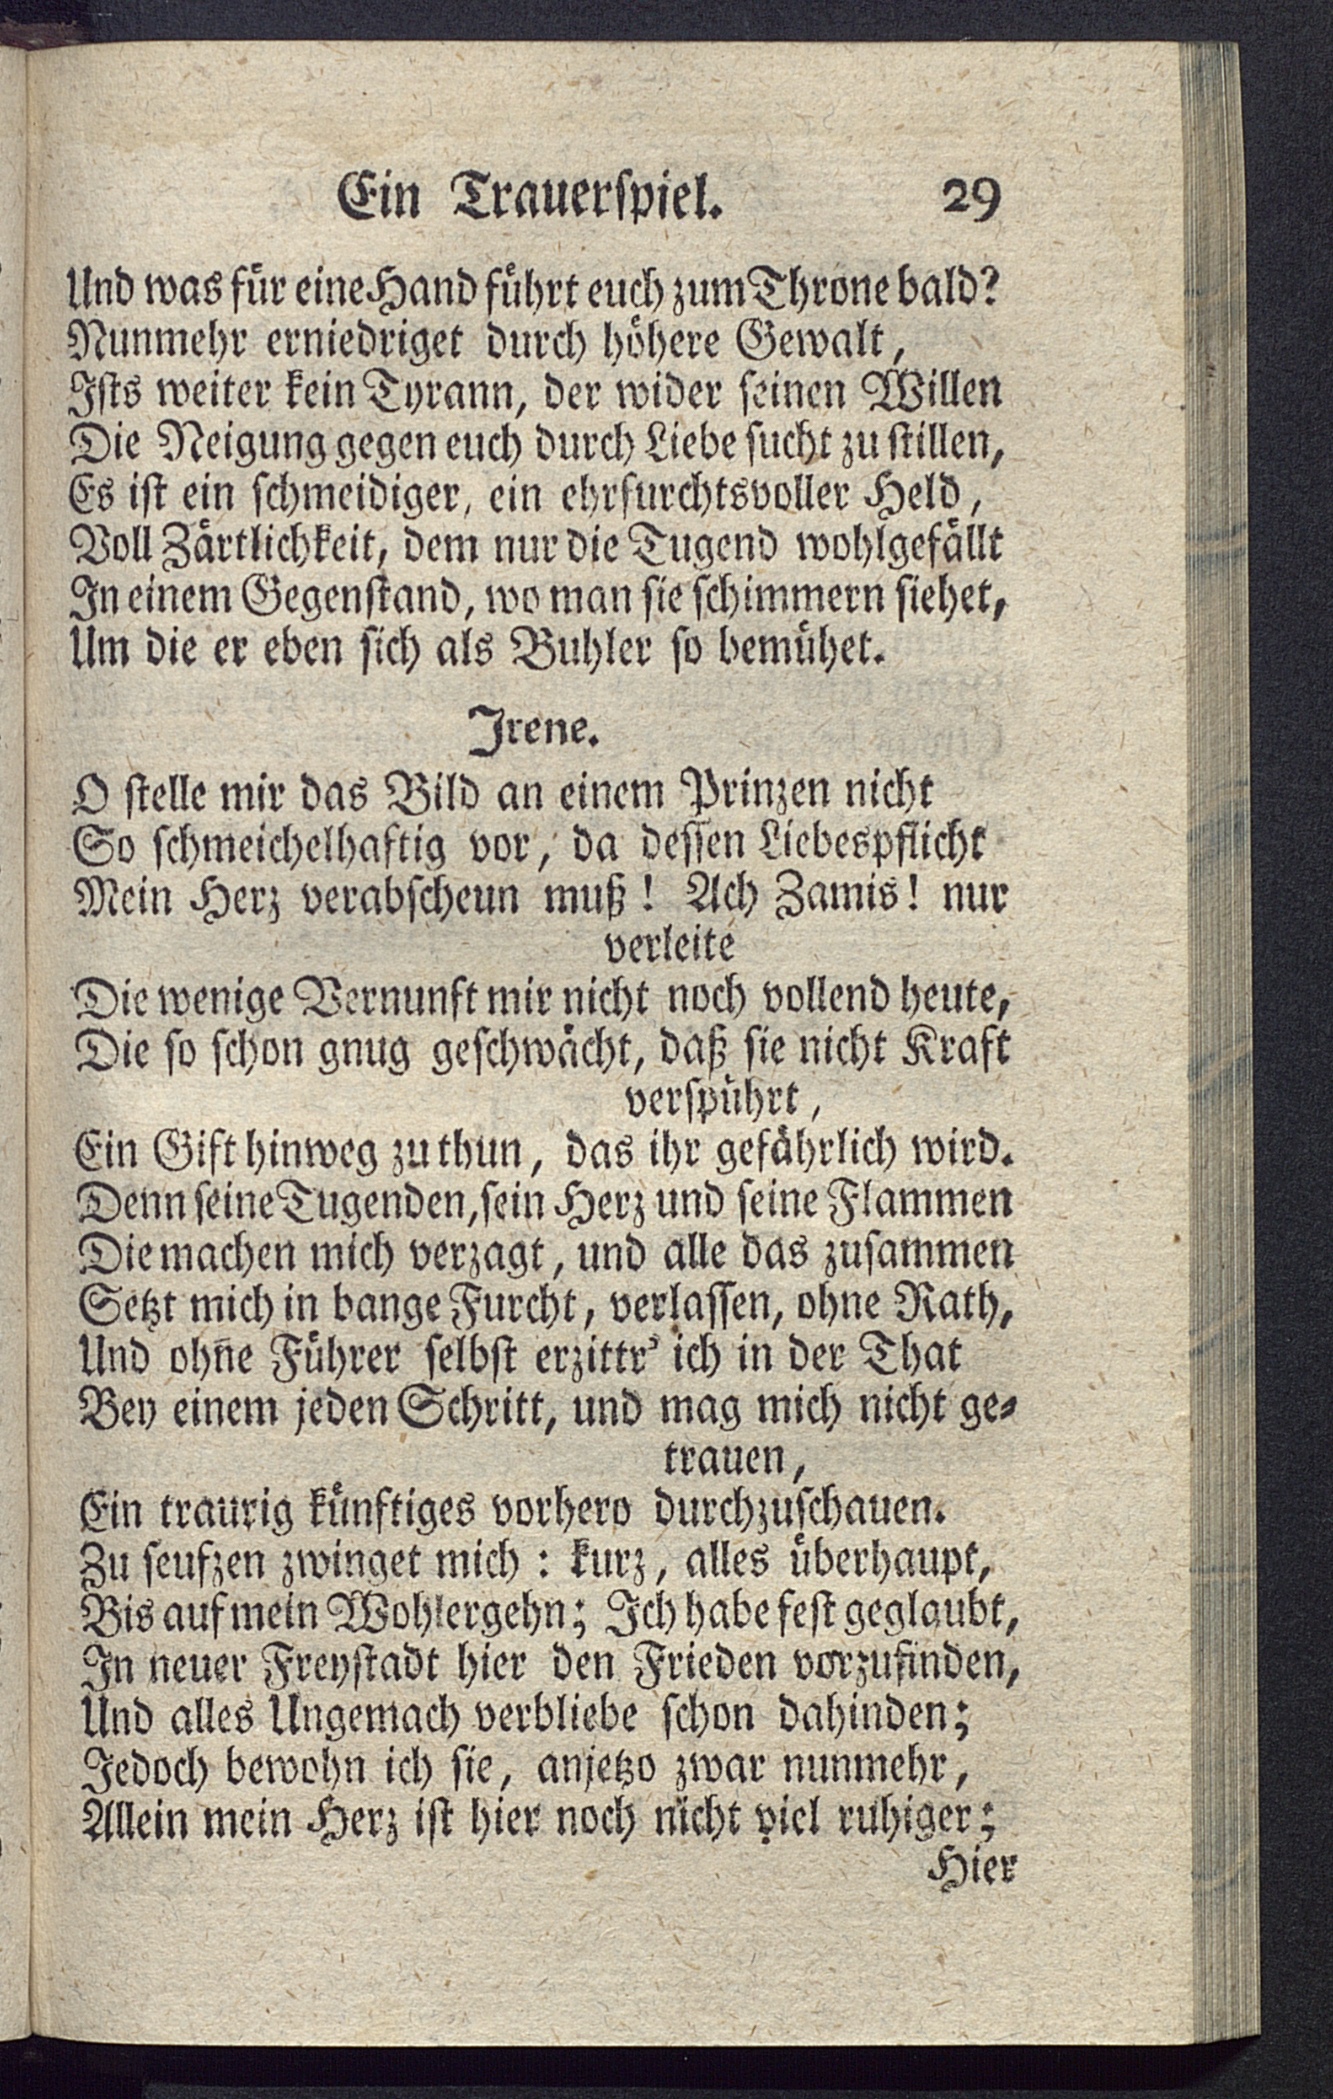 Ein Trauerspiel. 29
Und was für eine Hand führt euch zum Throne bald?
Nunmehr erniedriget durch höhere Gewalt,
Ists weiter kein Tyrann, der wider seinen Willen
Die Neigung gegen euch durch Liebe sucht zu stillen,
Es ist ein schmeidiger, ein ehrfurchtsvoller Held,
Voll Zärtlichkeit, dem nur die Tugend wohlgefällt
In einem Gegenstand, wo man sie schimmern siehet,
Um die er eben sich als Buhler so bemühet.
Irene.
O stelle mir das Bild an einem Prinzen nicht
So schmeichelhaftig vor, da dessen Liebespflicht
Mein Herz verabscheun muß! Ach Zamis! nur
verleite
Die wenige Vernunft mir nicht noch vollend heute,
Die so schon gnug geschwächt, daß sie nicht Kraft
verspührt,
Ein Gift hinweg zu thun, das ihr gefährlich wird.
Denn seine Tugenden, sein Herz und seine Flammen
Die machen mich verzagt, und alle das zusammen
Setzt mich in bange Furcht, verlassen, ohne Rath,
Und ohn̄e Führer selbst erzittr' ich in der That
Bey einem jeden Schritt, und mag mich nicht ge-
trauen,
Ein traurig künftiges vorhero durchzuschauen.
Zu seufzen zwinget mich: kurz, alles überhaupt,
Bis auf mein Wohlergehn; Ich habe fest geglaubt,
In neuer Freystadt hier den Frieden vorzufinden,
Und alles Ungemach verbliebe schon dahinden;
Jedoch bewohn ich sie, anjetzo zwar nunmehr,
Allein mein Herz ist hier noch nicht viel ruhiger;
Hier